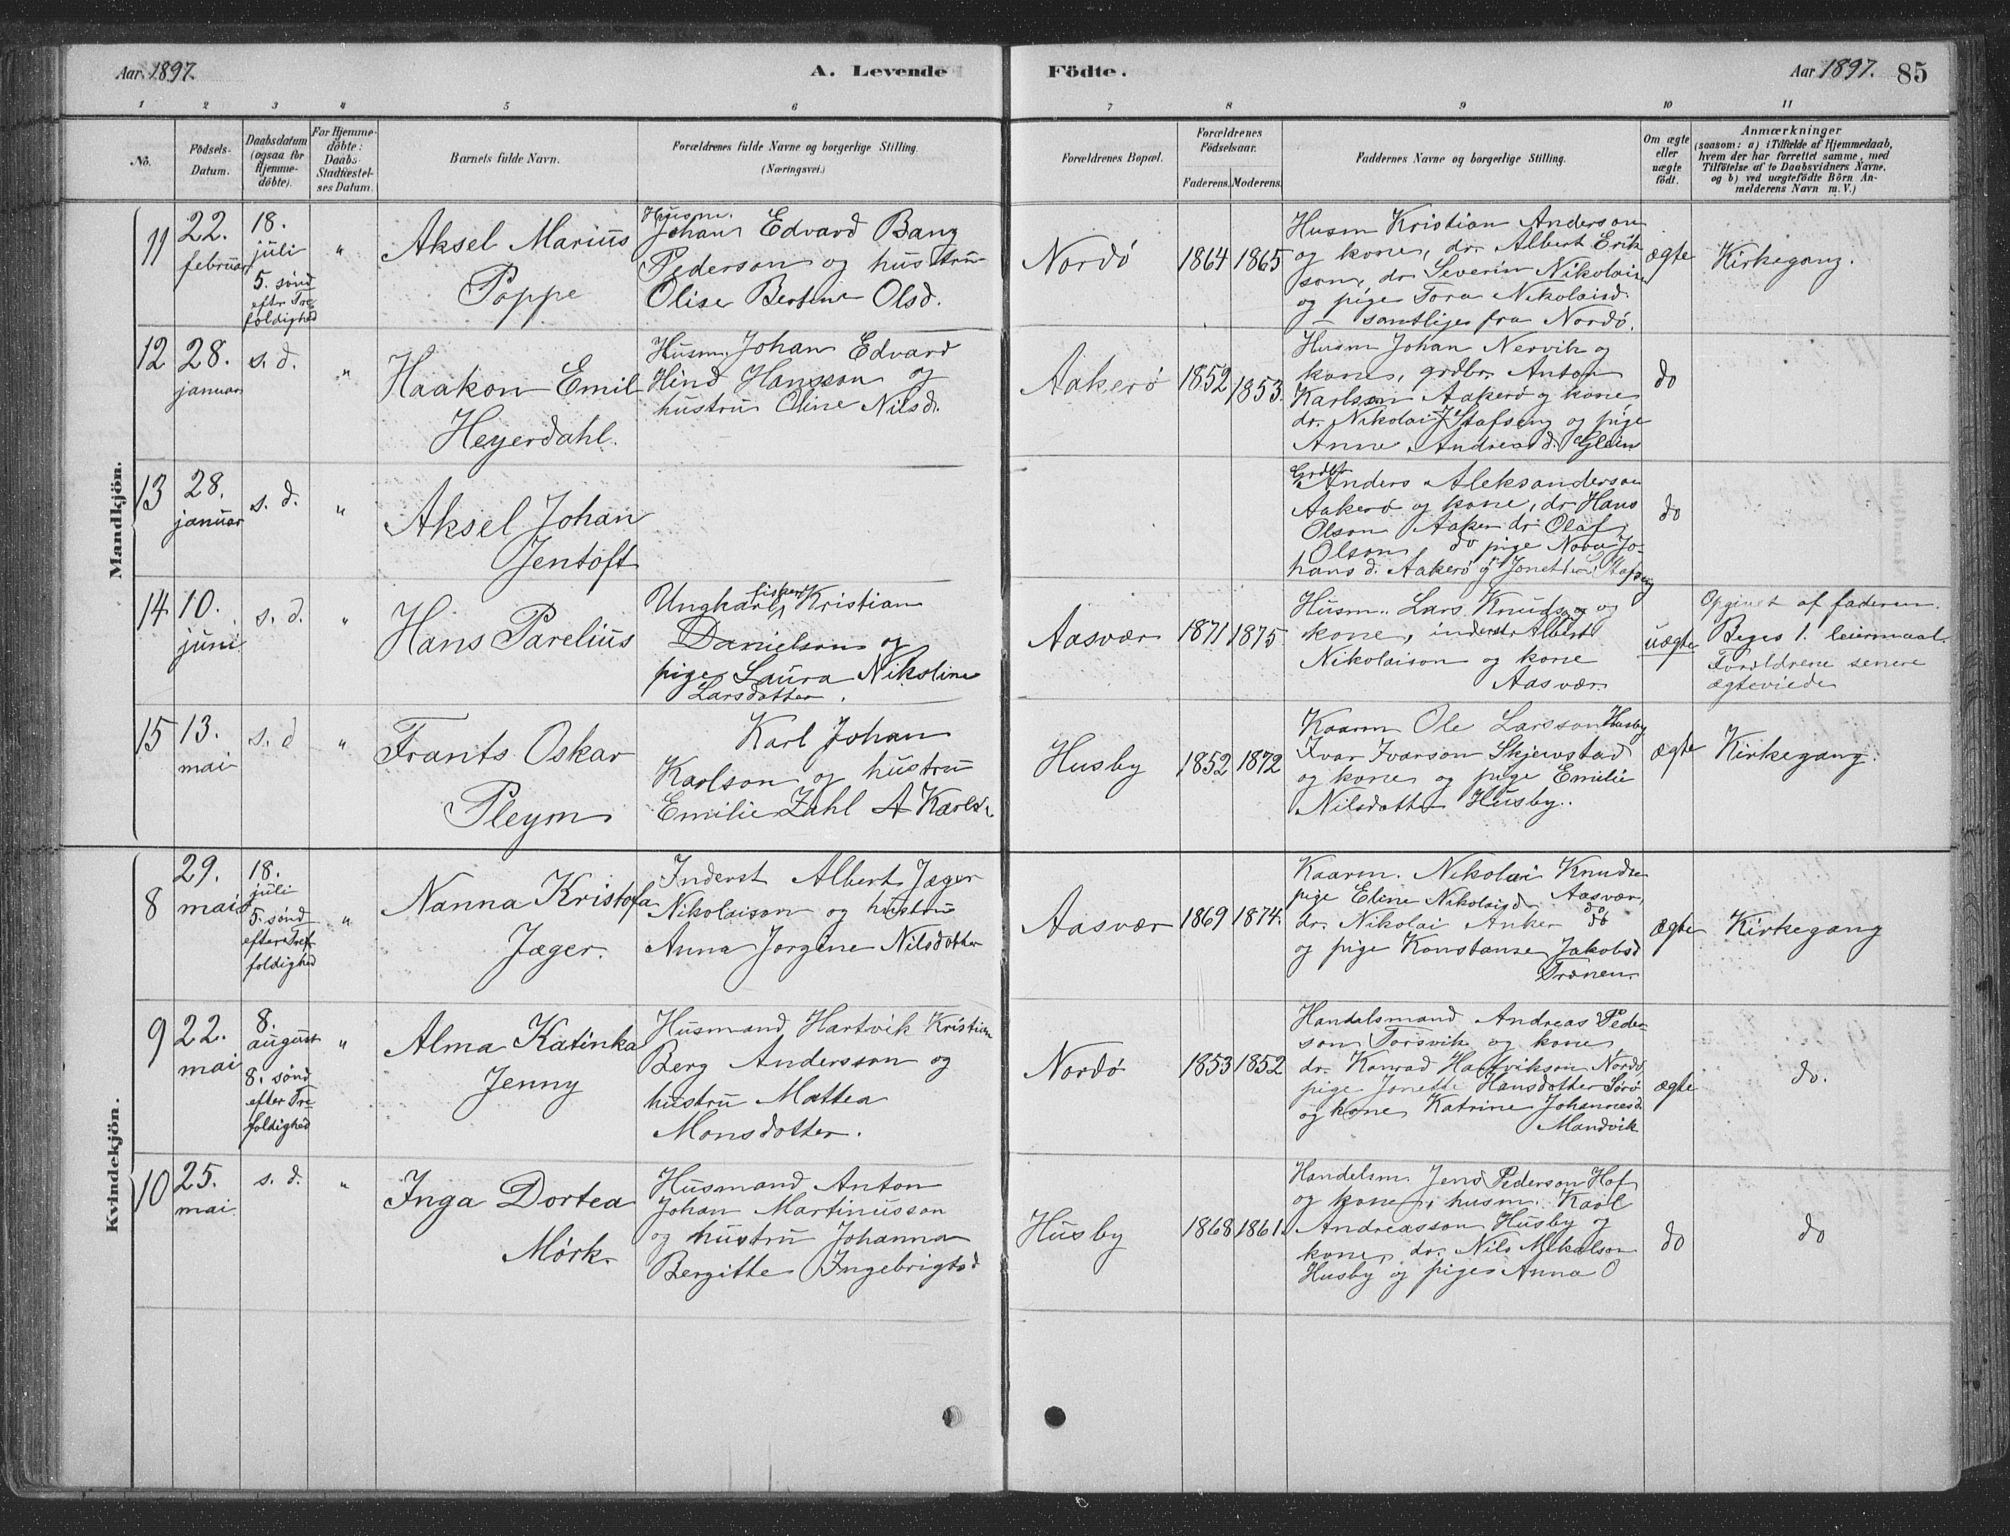 Aar 1897.
A. Levende Födte.
Aar 1897. 85
1 2 3 4 5 6 7 8 9 10 11
No.
Födsels-
Datum.
Daabsdatum
(ogsaa for
Hjemme-
döbte).
For Hjemme-
döbte:
Daabs-
Stadfæstel-
ses Datum.
Barnets fulde Navn.
Forældrenes fulde Navne og borgerlige Stilling.
(Næringsvei.)
Forældrenes Bopæl.
Forældrenes
Födselsaar.
Faderens. Moderens.
Faddernes Navne og borgerlige Stilling.
Om ægte
eller
uægte
födt.
Anmærkninger
(saasom: a) i Tilfælde af Hjemmedaab,
hvem der har forrettet samme, med
Tilföielse af to Daabsvidners Navne,
og b) ved uægtefödte Börn An-
melderens Navn m. V.)
Mandkjön.
11
22.
februar
18.
juli
5. sønd
eftr Tre
foldighed
"
Aksel Marius
Poppe
Husm.
Johan Edvard Bang
Pederson og hustru
Olise Bertine Olsd.
Nordö
1864 1865
Husm Kristian Anderson
og kone, dr. Albert Erik
son, dr Severin Nikolais
og pige Tora Nikolaisd.
– samtlige fra Nordö.
ægte
Kirkegang.
12
28.
januar
s. d.
"
Haakon Emil
Heyerdahl.
Husm. Johan Edvard
Hind Hansson og
hustru Oline Nilsd.
Aakerö
1852 1853.
Husm Johan Nervik og
kone, grdbr. Anton
Karlson Aakerö og kone
dr. Nikolai J Stafseng og pige
Anne Andreasd. Glein
do
13
28.
januar
s. d.
"
Aksel Johan
Jentoft
Anders Aleksanderson
Aakerö og kone, dr. Hans
Olson Aaker dr. Olaf
Olson do pige Nova Jo-
hansd. Aakerö og Stafseng
do
14
10.
juni
s. d.
"
Hans Parelius
Ungkarl fisker Kristian
Danielson og
pige Laura Nikoline
Larsdatter.
Aasvær
1871 1875.
Husm. Lars Knudson og
kone, inderst Albert
Nikolaison og kone
Aasvær
uægte
Opgivet af faderen.
Beges 1. leiermaal.
Forældrene senere
ægteviede
15
13.
mai
s. d
"
Frants Oskar
Pleym
Karl Johan
Karlson og hustru
Emilie Zahl A Karls
Husby
1852 1872
Kaarm Ole Larsson Husby
Ivar Ivarson Skjevstad
og kone og pige Emilie
Nilsdatter Husby.
ægte
Kirkegang.
Kvindekjön.
8
29.
mai
18.
juli
5. sønd
efter Tre
foldighed
"
Nanna Kristofa
Jæger.
Inderst Albert Jæger
Nikolaison og hustru
Anna Jorgine Nilsdotter
Aasvær
1869 1874.
Kaarm. Nikolai Knuds
pige Eline Nikolaisd Aasvær,
dr. Nikolai Anker do
og pige Konstanse Jakobsd
Trænen
ægte
Kirkegang
9
22.
mai
8.
august
8. sønd
efter Tre
foldighed
"
Alma Katinka
Jenny
Husmand Hartvik Kristian
Berg Andersson og
hustru Mattea
Monsdotter.
Nordö
1853 1852
Handelsmand Andreas Peder
son Torsvik og kone
dr. Konrad Hartvikson Nordö,
pige Jonette Hansdotter Sörö
og kone Katrine Johannesd.
Mandvik
ægte
do.
10
25.
mai
s. d.
"
Inga Dortea
Mörk.
Husmand Anton
Johan Martinusson
og hustru Johanna
Bergitte Ingebrigtsd
Husby
1868 1861.
Handelsm Jens Pederson Hof
og kone, husm. Karl
Andreasson Husby og
kone, dr. Nils Mikalson
Husby og pige Anna O
do
do